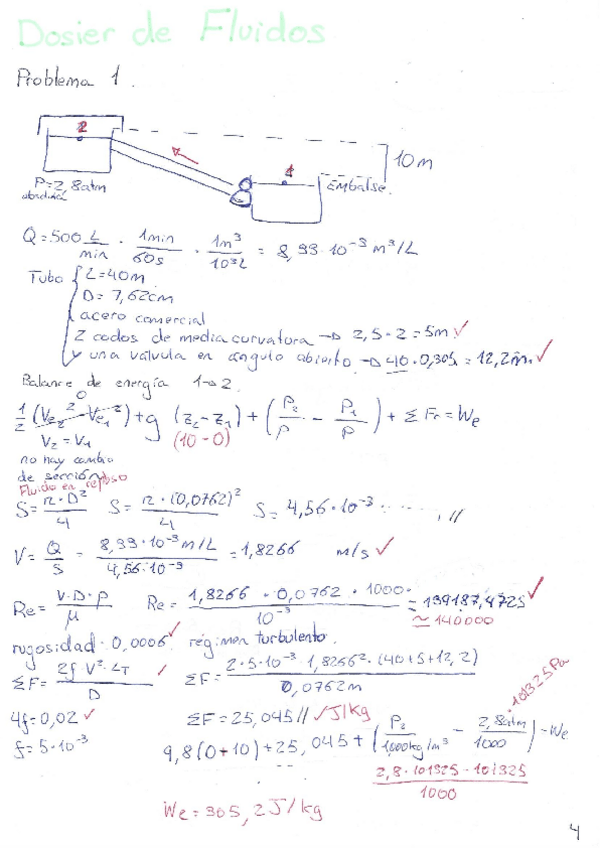 Dosier de Fluidos
Problema 1.
2
1
10m
P=2,8atm
Embalse.
Q=500 L/min · 1min/60s · 1m³/10³L = 8,33·10⁻³ m³/L
Tubo { L=40m
D=7,62cm
acero comercial
2 codos de media curvatura → 2,5·2=5m ✓
y una válvula en ángulo abierto → 40·0,305=12,2m ✓
Balance de energía 1→2
1/2 (Ve₂² - Ve₁²) + g (z₂-z₁) + (P₂/ρ - P₁/ρ) + ΣFr = We
0
V₂ = V₁
(10-0)
no hay cambio
de sección
Fluido en reposo
S = π·D²/4 S = π·(0,0762)²/4 S = 4,56·10⁻³ ,//
V = Q/S = 8,33·10⁻³ m/L / 4,56·10⁻³ = 1,8266 m/s ✓
Re = V·D·ρ/μ Re = 1,8266 · 0,0762 · 1000 / 10⁻³ = 139187,4725 ✓
≃ 140000
rugosidad · 0,0006 ✓ régimen turbulento.
ΣF = 2f·V²·LT / D ✓ ΣF = 2·5·10⁻³·1,8266²·(40+5+12,2) / 0,0762m
4f=0,02 ✓ ΣF = 25,045// ✓ J/kg
·101325Pa
f=5·10⁻³ 9,8(0+10)+25,045+(P₂/1000kg/m³ - 2,8atm/1000) - We
2,8·101325·101325 / 1000
We = 305,2J/kg
4